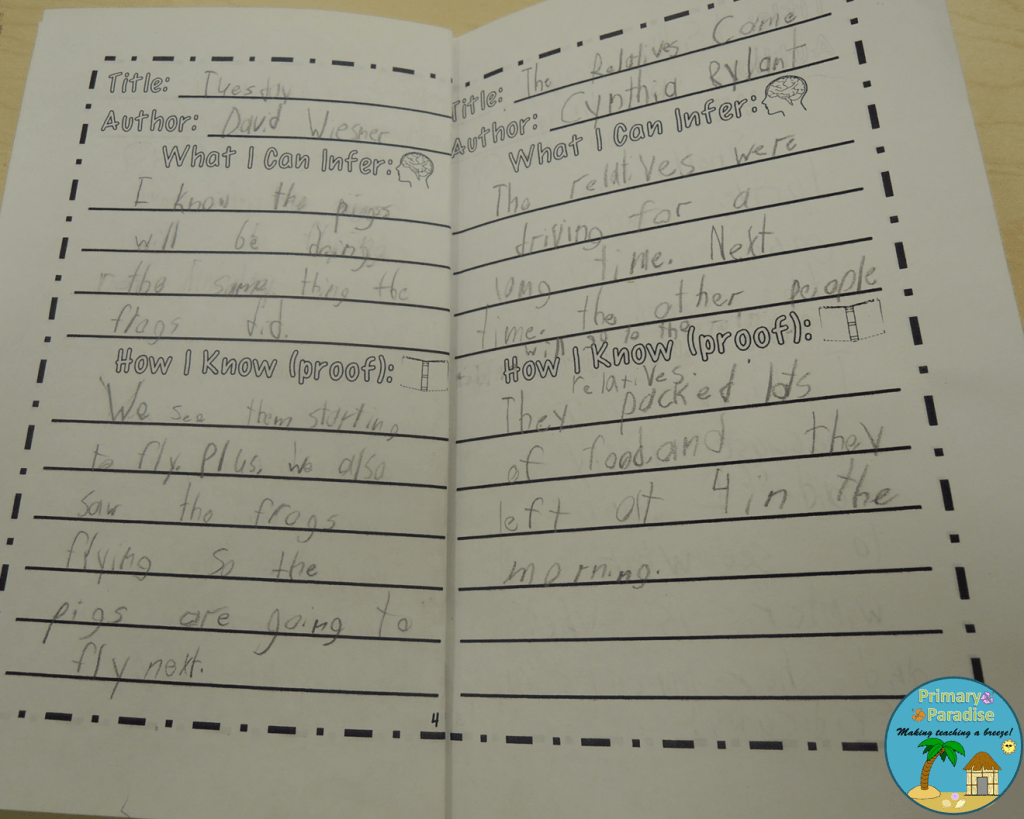 Title: Tuesday
Author: David Wiesner
What I Can Infer:
I know the piges
will be doing
the same thing the
frogs did.
How I Know (proof):
We see them starting
to fly. Plus, we also
saw the frogs
flying so the
pigs are going to
fly next.
4
Title: The Relatives Came
Author: Cynthia Rylant
What I Can Infer:
The relatives were
driving for a
long time. Next
time. the other peaple
will go to the
relatives.
How I Know (proof):
They packed lots
of food.and they
left at 4 in the
morning.
Primary
Paradise
Making teaching a breeze!